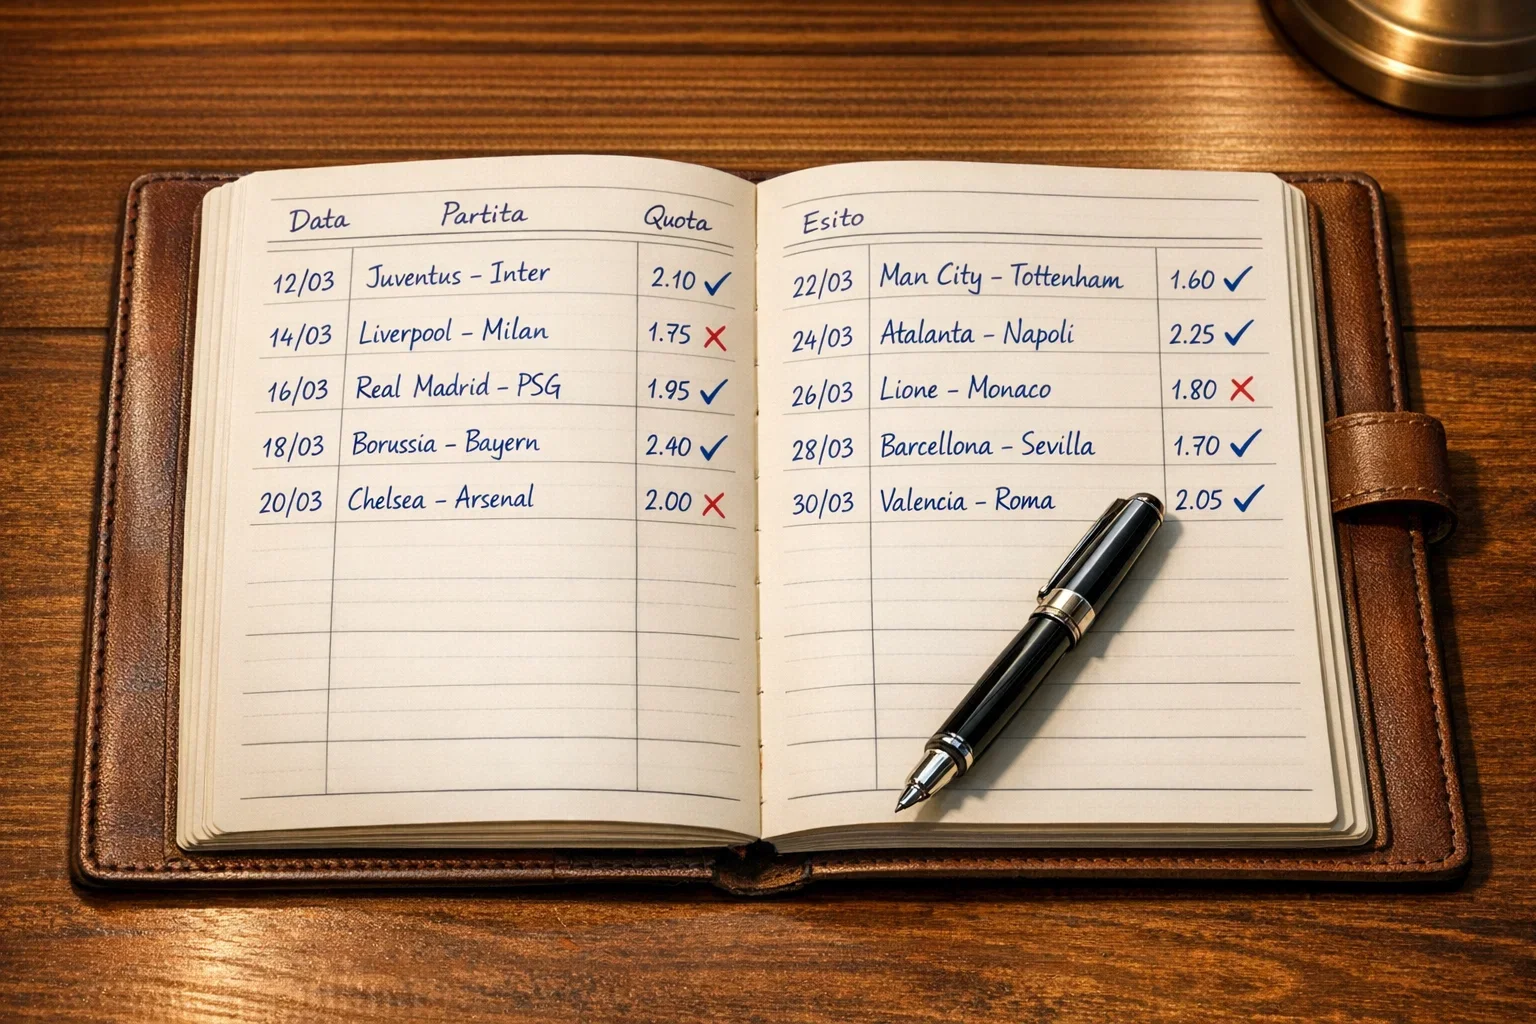 Data Partita Quota
12/03 Juventus – Inter 2.10 ✓
14/03 Liverpool – Milan 1.75 ✗
16/03 Real Madrid – PSG 1.95 ✓
18/03 Borussia – Bayern 2.40 ✓
20/03 Chelsea – Arsenal 2.00 ✗
Esito
22/03 Man City – Tottenham 1.60 ✓
24/03 Atalanta – Napoli 2.25 ✓
26/03 Lione – Monaco 1.80 ✗
28/03 Barcellona – Sevilla 1.70 ✓
30/03 Valencia – Roma 2.05 ✓